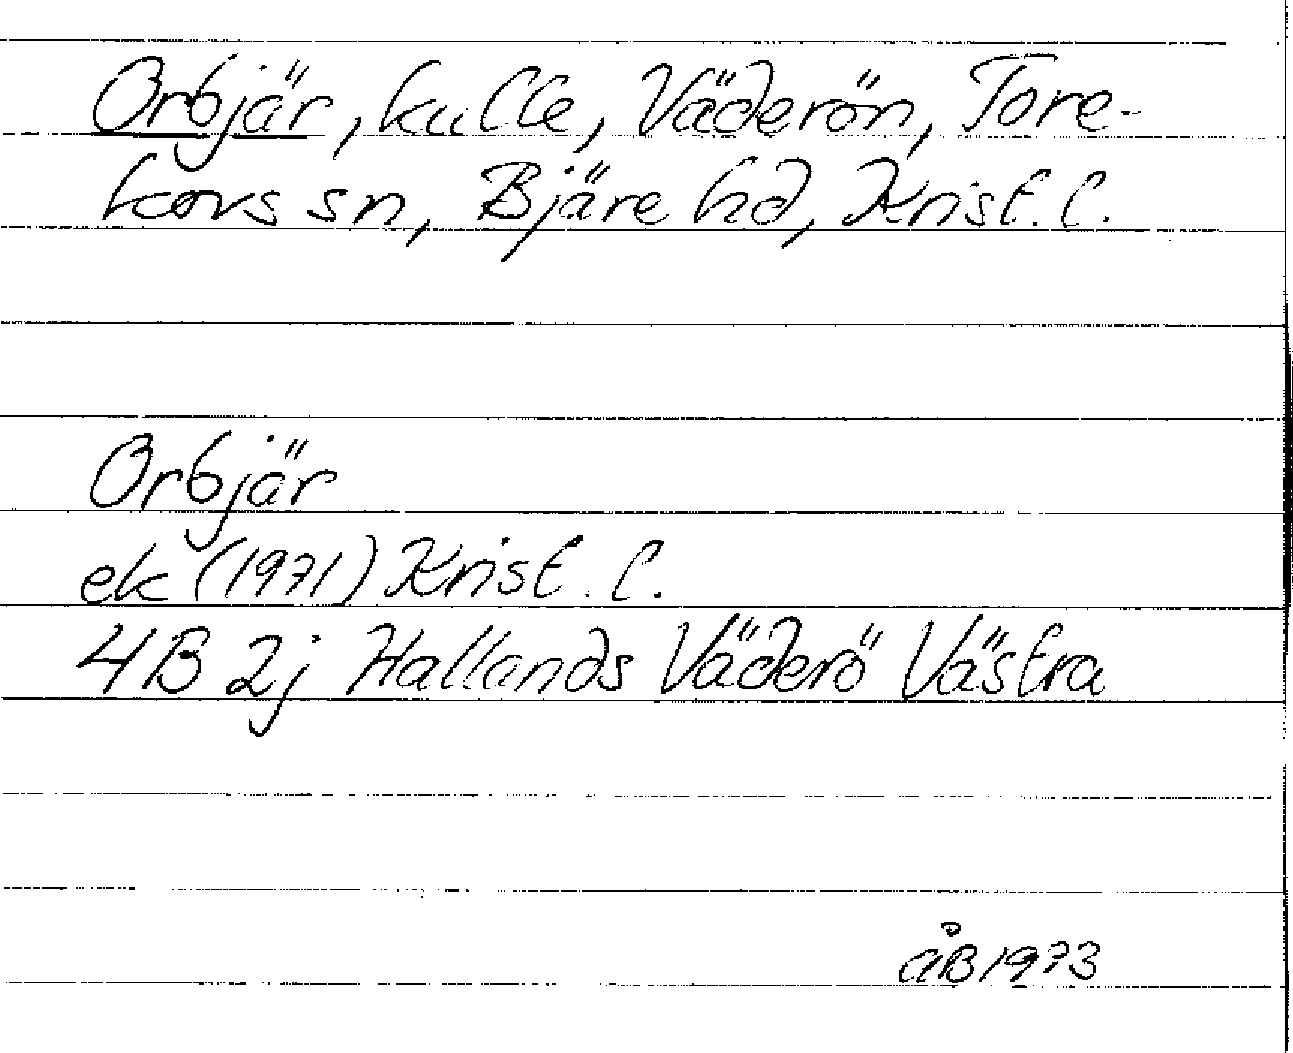 Orbjär, kulle, Väderön, Tore-
kovs sn, Bjäre hd, Krist. l.
Orbjär
ek (1971) Krist. l.
4B 2j Hallands Väderö Västra
ÅB 1973